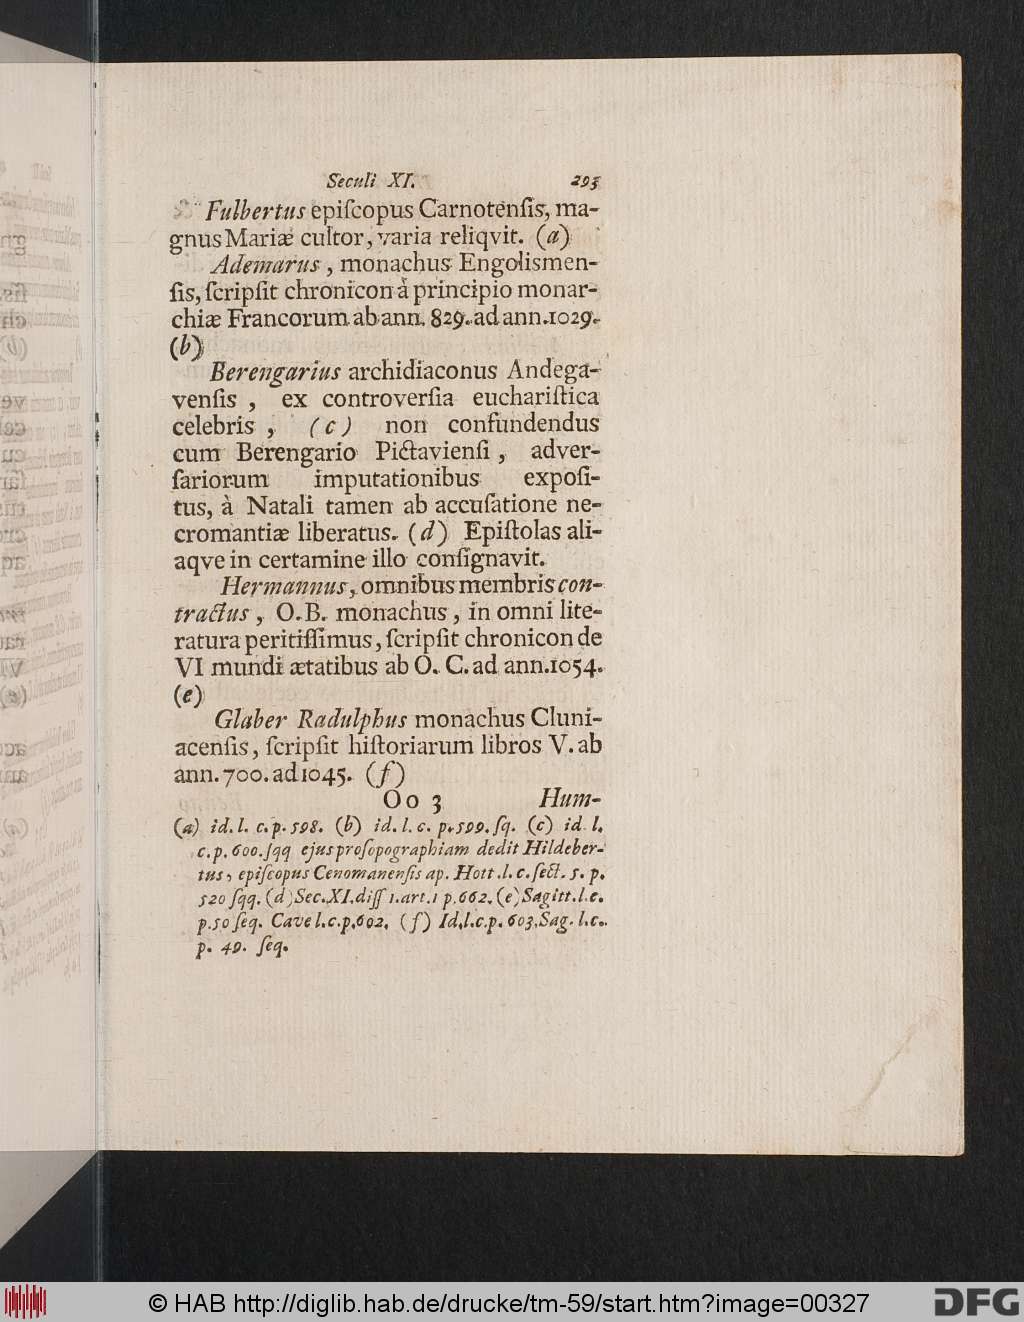 Seculi XI. 293
Fulbertus epiſcopus Carnotenſis, ma-
gnus Mariæ cultor, varia reliqvit. (a)
Ademarus, monachus Engolismen-
ſis, ſcripſit chronicon à principio monar-
chiæ Francorum ab ann. 829. ad ann. 1029.
(b)
Berengarius archidiaconus Andega-
venſis, ex controverſia euchariſtica
celebris, (c) non confundendus
cum Berengario Pictavienſi, adver-
ſariorum imputationibus expoſi-
tus, à Natali tamen ab accuſatione ne-
cromantiæ liberatus. (d) Epiſtolas ali-
aqve in certamine illo conſignavit.
Hermannus, omnibus membris con-
tractus, O.B. monachus, in omni lite-
ratura peritiſſimus, ſcripſit chronicon de
VI mundi ætatibus ab O. C. ad ann. 1054.
(e)
Glaber Radulphus monachus Cluni-
acenſis, ſcripſit hiſtoriarum libros V. ab
ann. 700. ad 1045. (f)
Oo 3 Hum-
(a) id. l. c. p. 598. (b) id. l. c. p. 599. ſq. (c) id. l.
c. p. 600. ſqq ejus proſopographiam dedit Hildeber-
tus, epiſcopus Cenomanenſis ap. Hott. l. c. ſect. 5. p.
520 ſqq. (d) Sec. XI. diſſ 1. art. 1 p. 662. (e) Sagitt. l. c.
p. 50 ſeq. Cave l. c. p. 602. (f) Id. l. c. p. 603. Sag. l. c.
p. 49. ſeq.
© HAB http://diglib.hab.de/drucke/tm-59/start.htm?image=00327
DFG